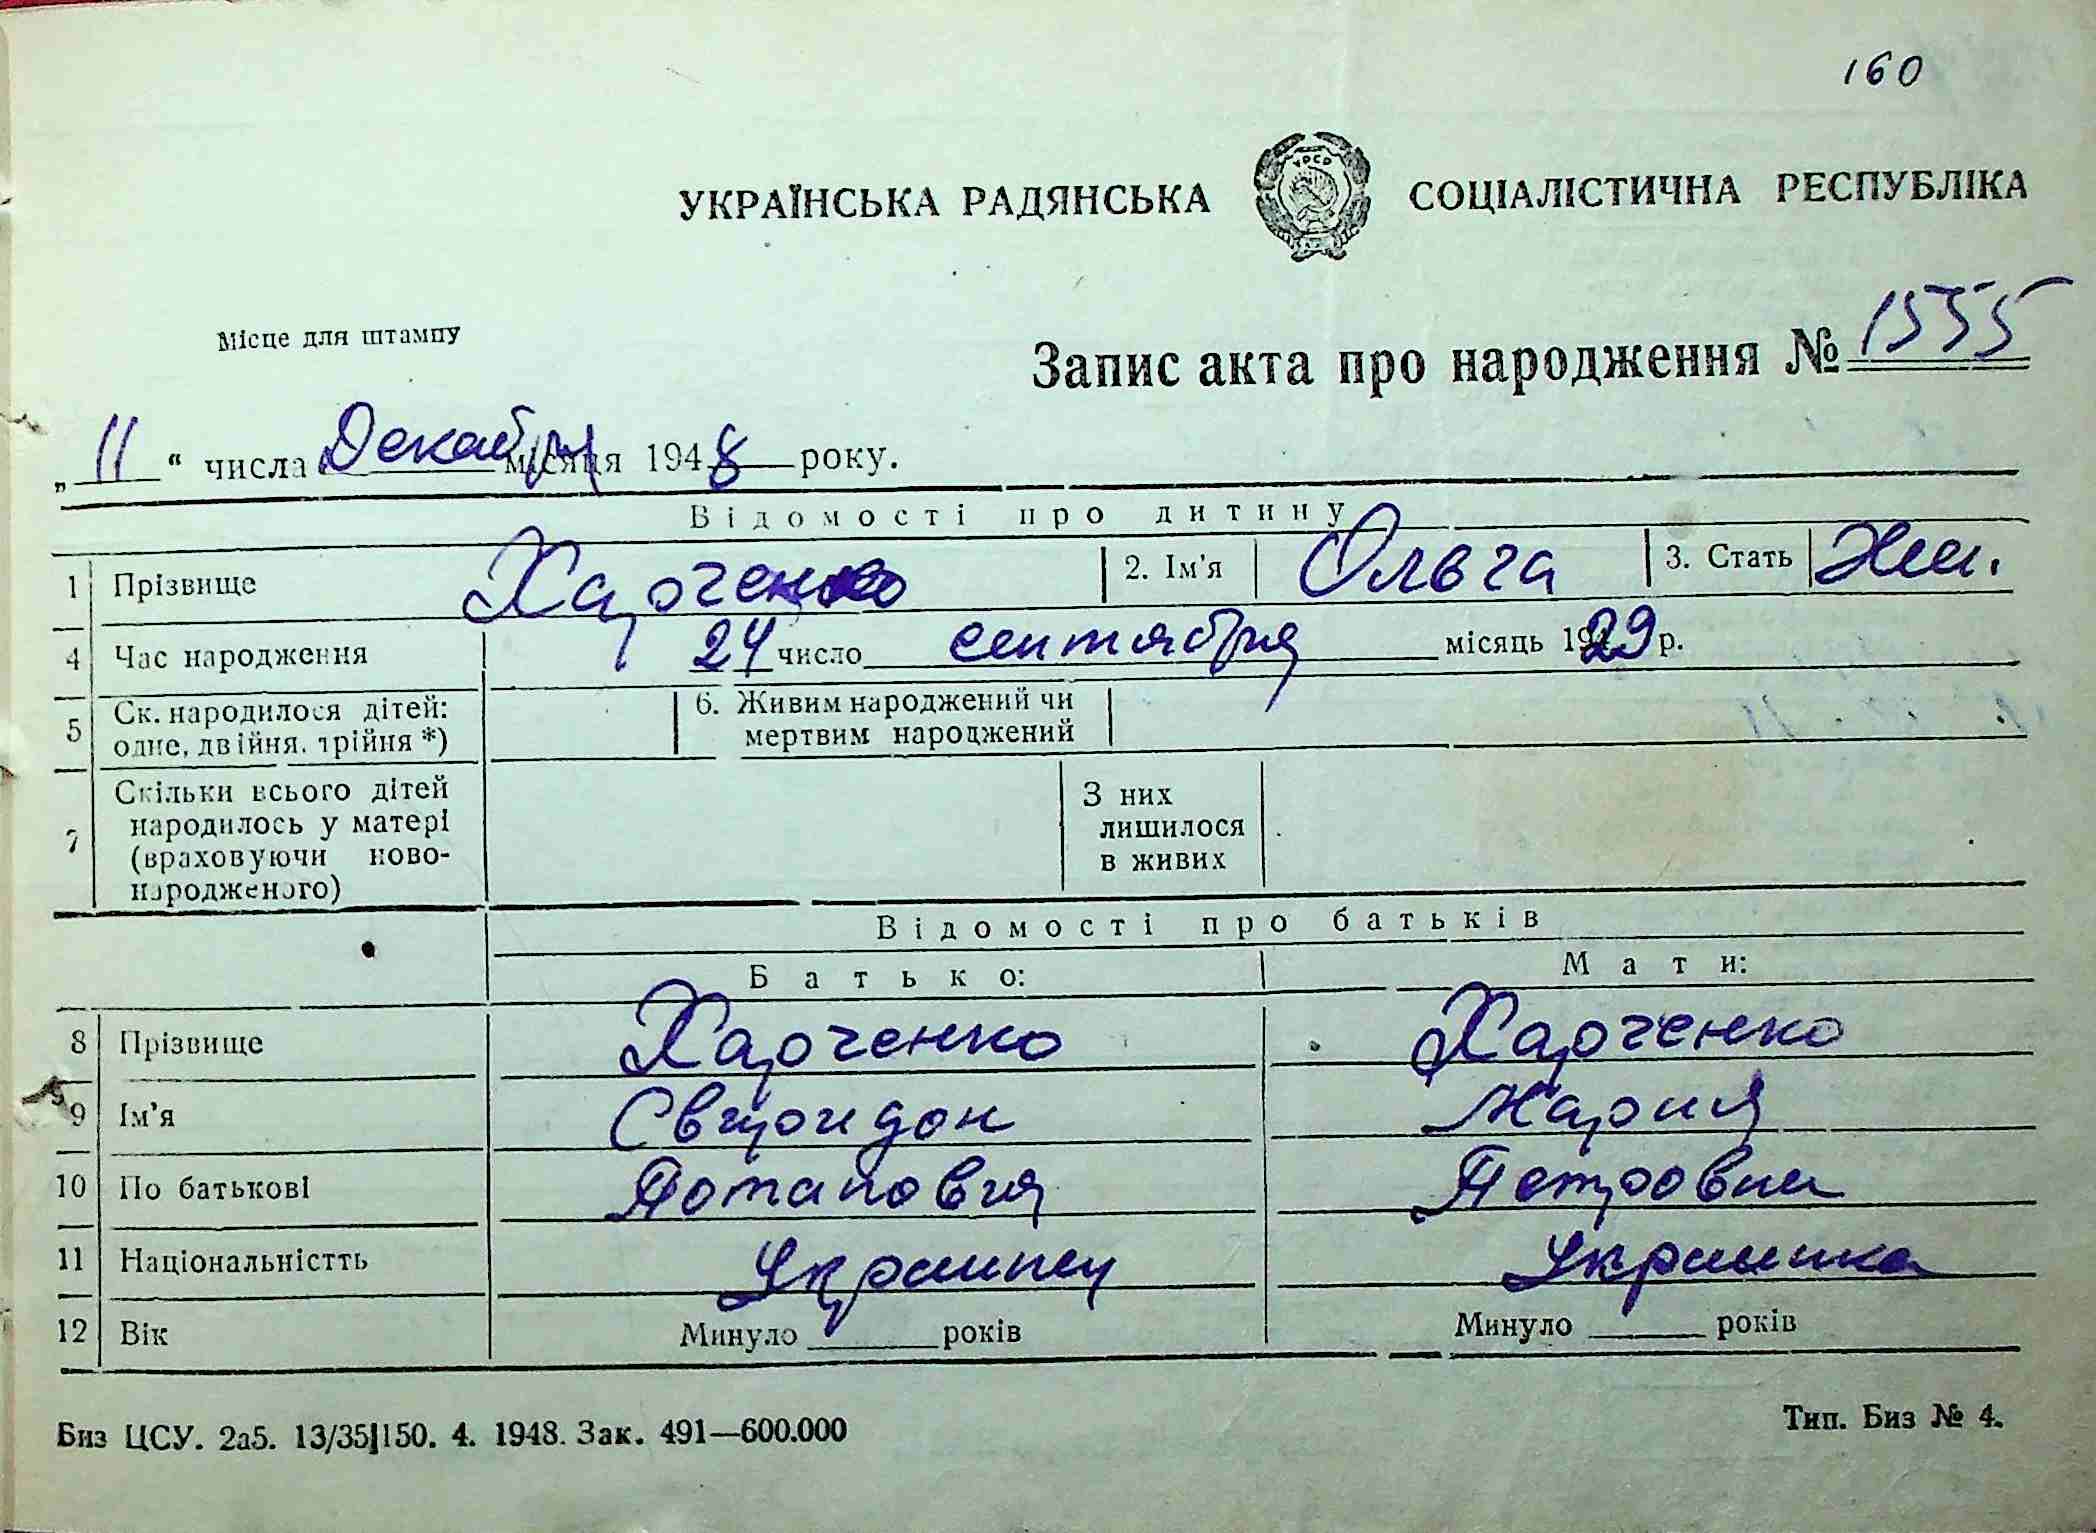 160
УКРАЇНСЬКА РАДЯНСЬКА СОЦІАЛІСТИЧНА РЕСПУБЛІКА
УРСР
Місце для штампу
Запис акта про народження № 1555
„11“ числа Декабря місяця 1948 року.
Відомості про дитину
1 Прізвище Харченко 2. Ім'я Ольга 3. Стать Жен.
4 Час народження 24 число сентября місяць 1929 р.
5 Ск. народилося дітей: одне, двійня, трійня *) 6. Живим народжений чи мертвим народжений
7 Скільки всього дітей народилось у матері (враховуючи ново-народженого) З них лишилося в живих
Відомості про батьків
Батько: Мати:
8 Прізвище Харченко Харченко
9 Ім'я Свиридон Мария
10 По батькові Потапович Петровна
11 Національністть Украинец Украинка
12 Вік Минуло років Минуло років
Биз ЦСУ. 2а5. 13/35|150. 4. 1948. Зак. 491—600.000 Тип. Биз № 4.